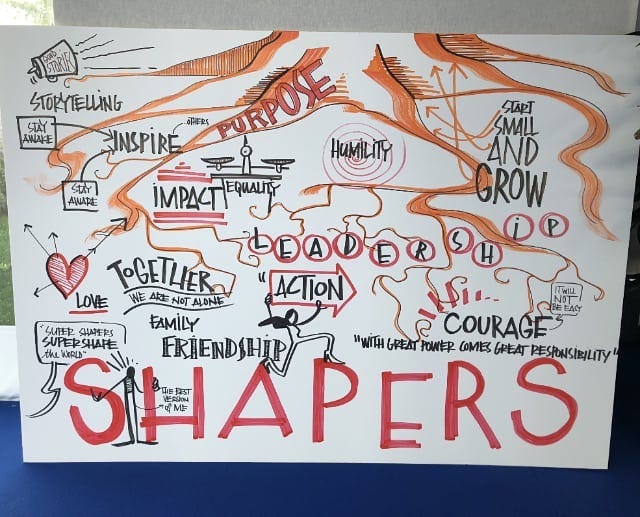 GOOD
STORIE
STORYTELLING
STAY
AWAKE
INSPIRE
OTHERS
PURPOSE
STAY
AWARE
IMPACT
EQUALITY
HUMILITY
START
SMALL
AND
GROW
LEADERSHIP
LOVE
TOGETHER
WE ARE NOT ALONE
FAMILY
FRIENDSHIP
"ACTION
IT WILL
NOT
BE EASY
COURAGE
"WITH GREAT POWER COMES GREAT RESPONSIBILITY"
"SUPER SHAPERS
SUPERSHAPE
the WORLD"
THE BEST
VERSION
of ME
SHAPERS